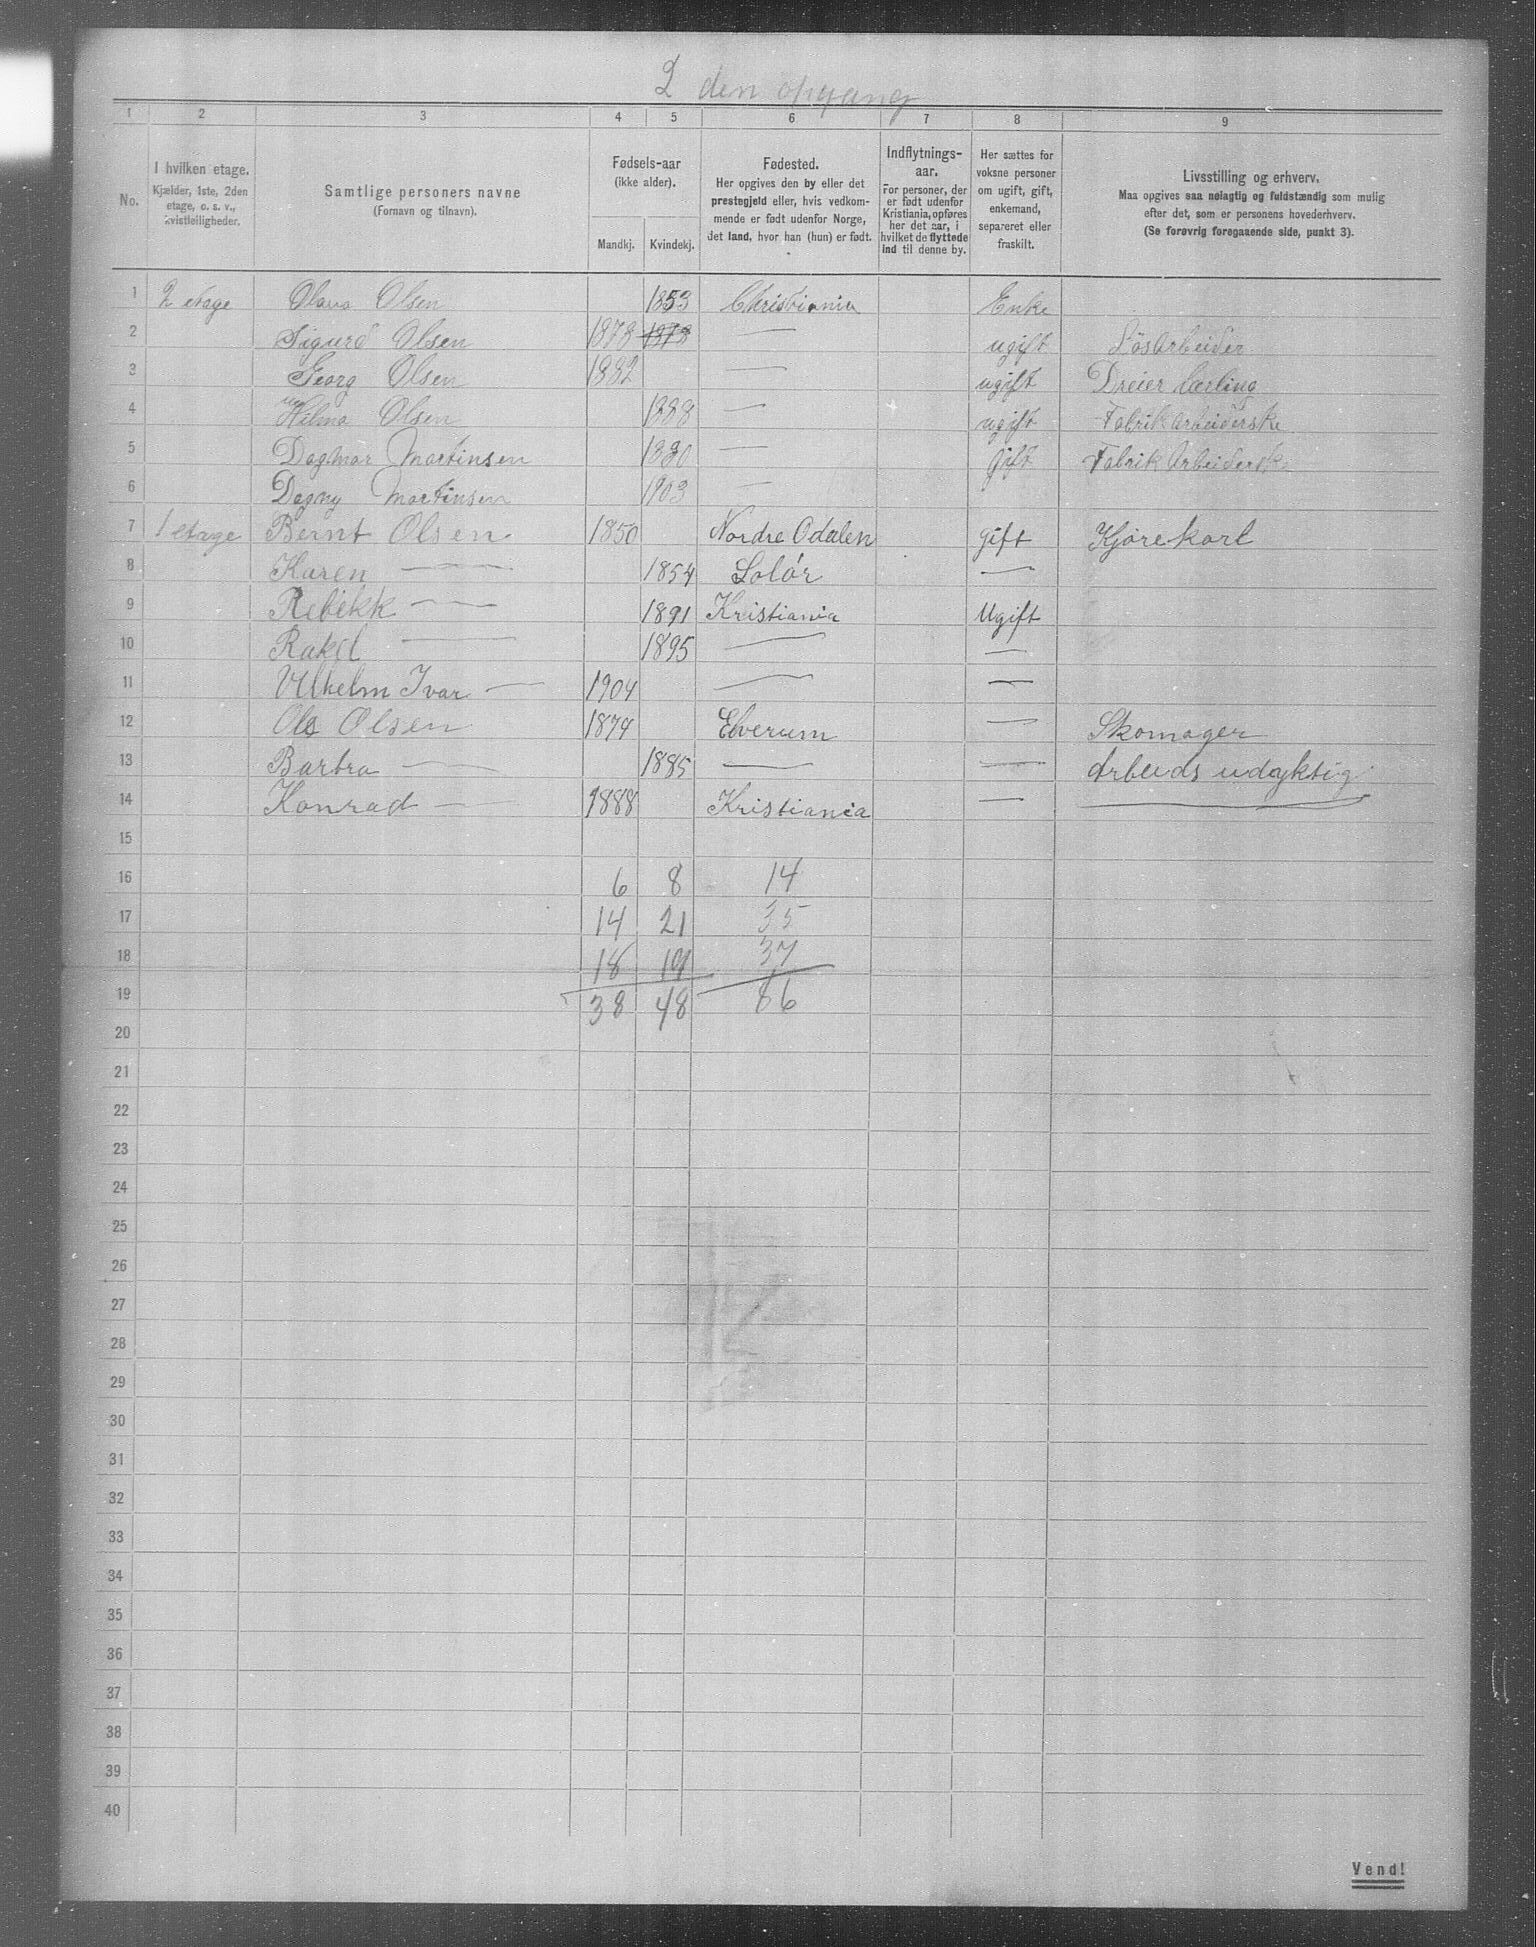 2 den opgang
1 2 3 4 5 6 7 8 9
No.
I hvilken etage.
Kjælder, 1ste, 2den
etage, o. s. v.,
kvistleiligheder.
Samtlige personers navne
(Fornavn og tilnavn).
Fødsels-aar
(ikke alder).
Mandkj. Kvindekj.
Fødested.
Her opgives den by eller det
prestegjeld eller, hvis vedkom-
mende er født udenfor Norge,
det land, hvor han (hun) er født.
Indflytnings-
aar.
For personer, der
er født udenfor
Kristiania, opføres
her det aar, i
hvilket de flyttede
ind til denne by.
Her sættes for
voksne personer
om ugift, gift,
enkemand,
separeret eller
fraskilt.
Livsstilling og erhverv.
Maa opgives saa nøiagtig og fuldstændig som mulig
efter det, som er personens hovederhverv.
(Se forøvrig foregaaende side, punkt 3).
1 2 etage Olava Olsen 1853 Christiania Enke
2 Sigurd Olsen 1878 1878 — ugift Løsarbeider
3 Georg Olsen 1882 — ugift Dreier Lærling
4 Hilma Olsen 1888 — ugift Fabrik Arbeiderske
5 Dagmar Martinsen 1880 — gift Fabrik Arbeiderske
6 Dagny Martinsen 1903 —
7 1 etage Bernt Olsen 1850 Nordre Odalen gift Kjørekarl
8 Karen — 1854 Solør —
9 Rebekk — 1891 Kristiania Ugift
10 Rakel — 1895 — —
11 Vilhelm Ivar — 1904 — —
12 Ole Olsen 1874 Elverum — Skomager
13 Barbra — 1885 — — Arbeids udyktig
14 Konrad — 1888 Kristiania —
15
16 6 8 14
17 14 21 35
18 18 19 37
19 38 48 86
20
21
22
23
24
25
26
27
28
29
30
31
32
33
34
35
36
37
38
39
40
Vend!